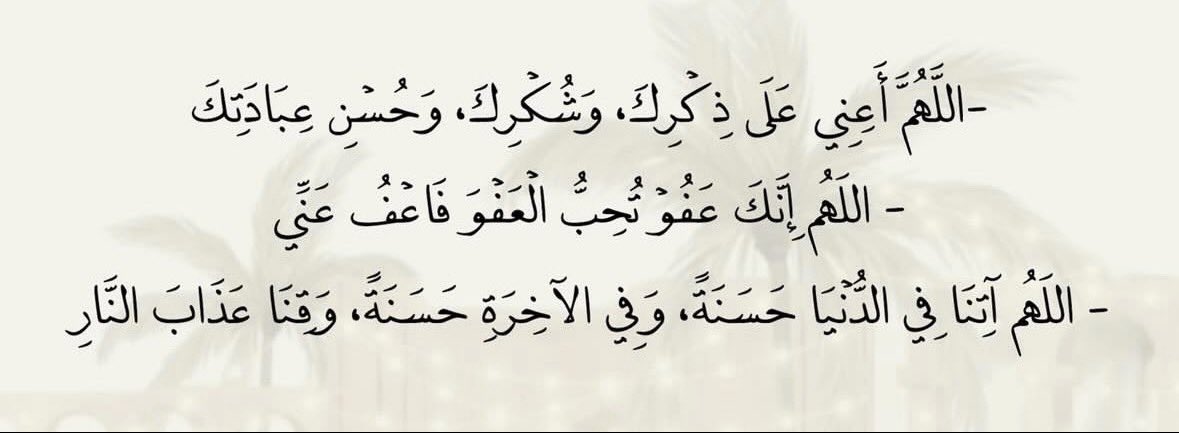 -اللَّهُمَّ أَعِنِي عَلَى ذِكْرِكَ، وَشُكْرِكَ، وَحُسْنِ عِبَادَتِكَ
- اللَهُم إِنَّكَ عَفُوْ تُحِبُّ الْعَفْوَ فَاعْفُ عَنِّي
- اللَهُم آتِنَا فِي الدُّنْيَا حَسَنَةً، وَفِي الآخِرَةِ حَسَنَةً، وَقِنَا عَذَابَ النَّارِ